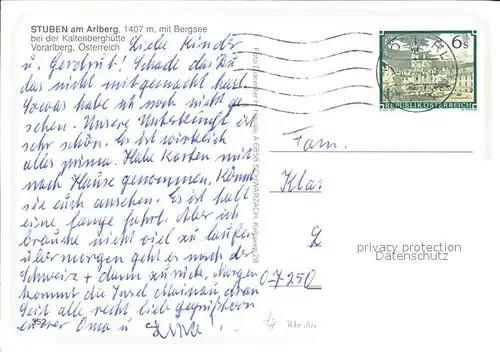 STUBEN am Arlberg, 1407 m, mit Bergsee
bei der Kaltenberghütte
Vorarlberg, Österreich
Liebe Kinder
u. Gerotrut! Schade das Du
das nicht mitgemacht hast.
Sowas habe ich noch nicht ge-
sehen. Unsere Unterkunft ist
sehr schön. Es ist wirklich
alles prima. Habe Karten mit
nach Hause genommen. Könnt
sie euch ansehen. Es ist halt
eine lange fahrt. Aber ich
brauche nicht viel zu laufen
übermorgen geht es nach der
Schweiz + dann zurück. Morgen
kommt die Insel Mainau, dran
Seit alle recht lieb gegrüßt von
eurer Oma u
352
A 6858 SCHWARZACH
6 s
REPUBLIK ÖSTERREICH
Fam.
Kla
07250
privacy protection
Datenschutz